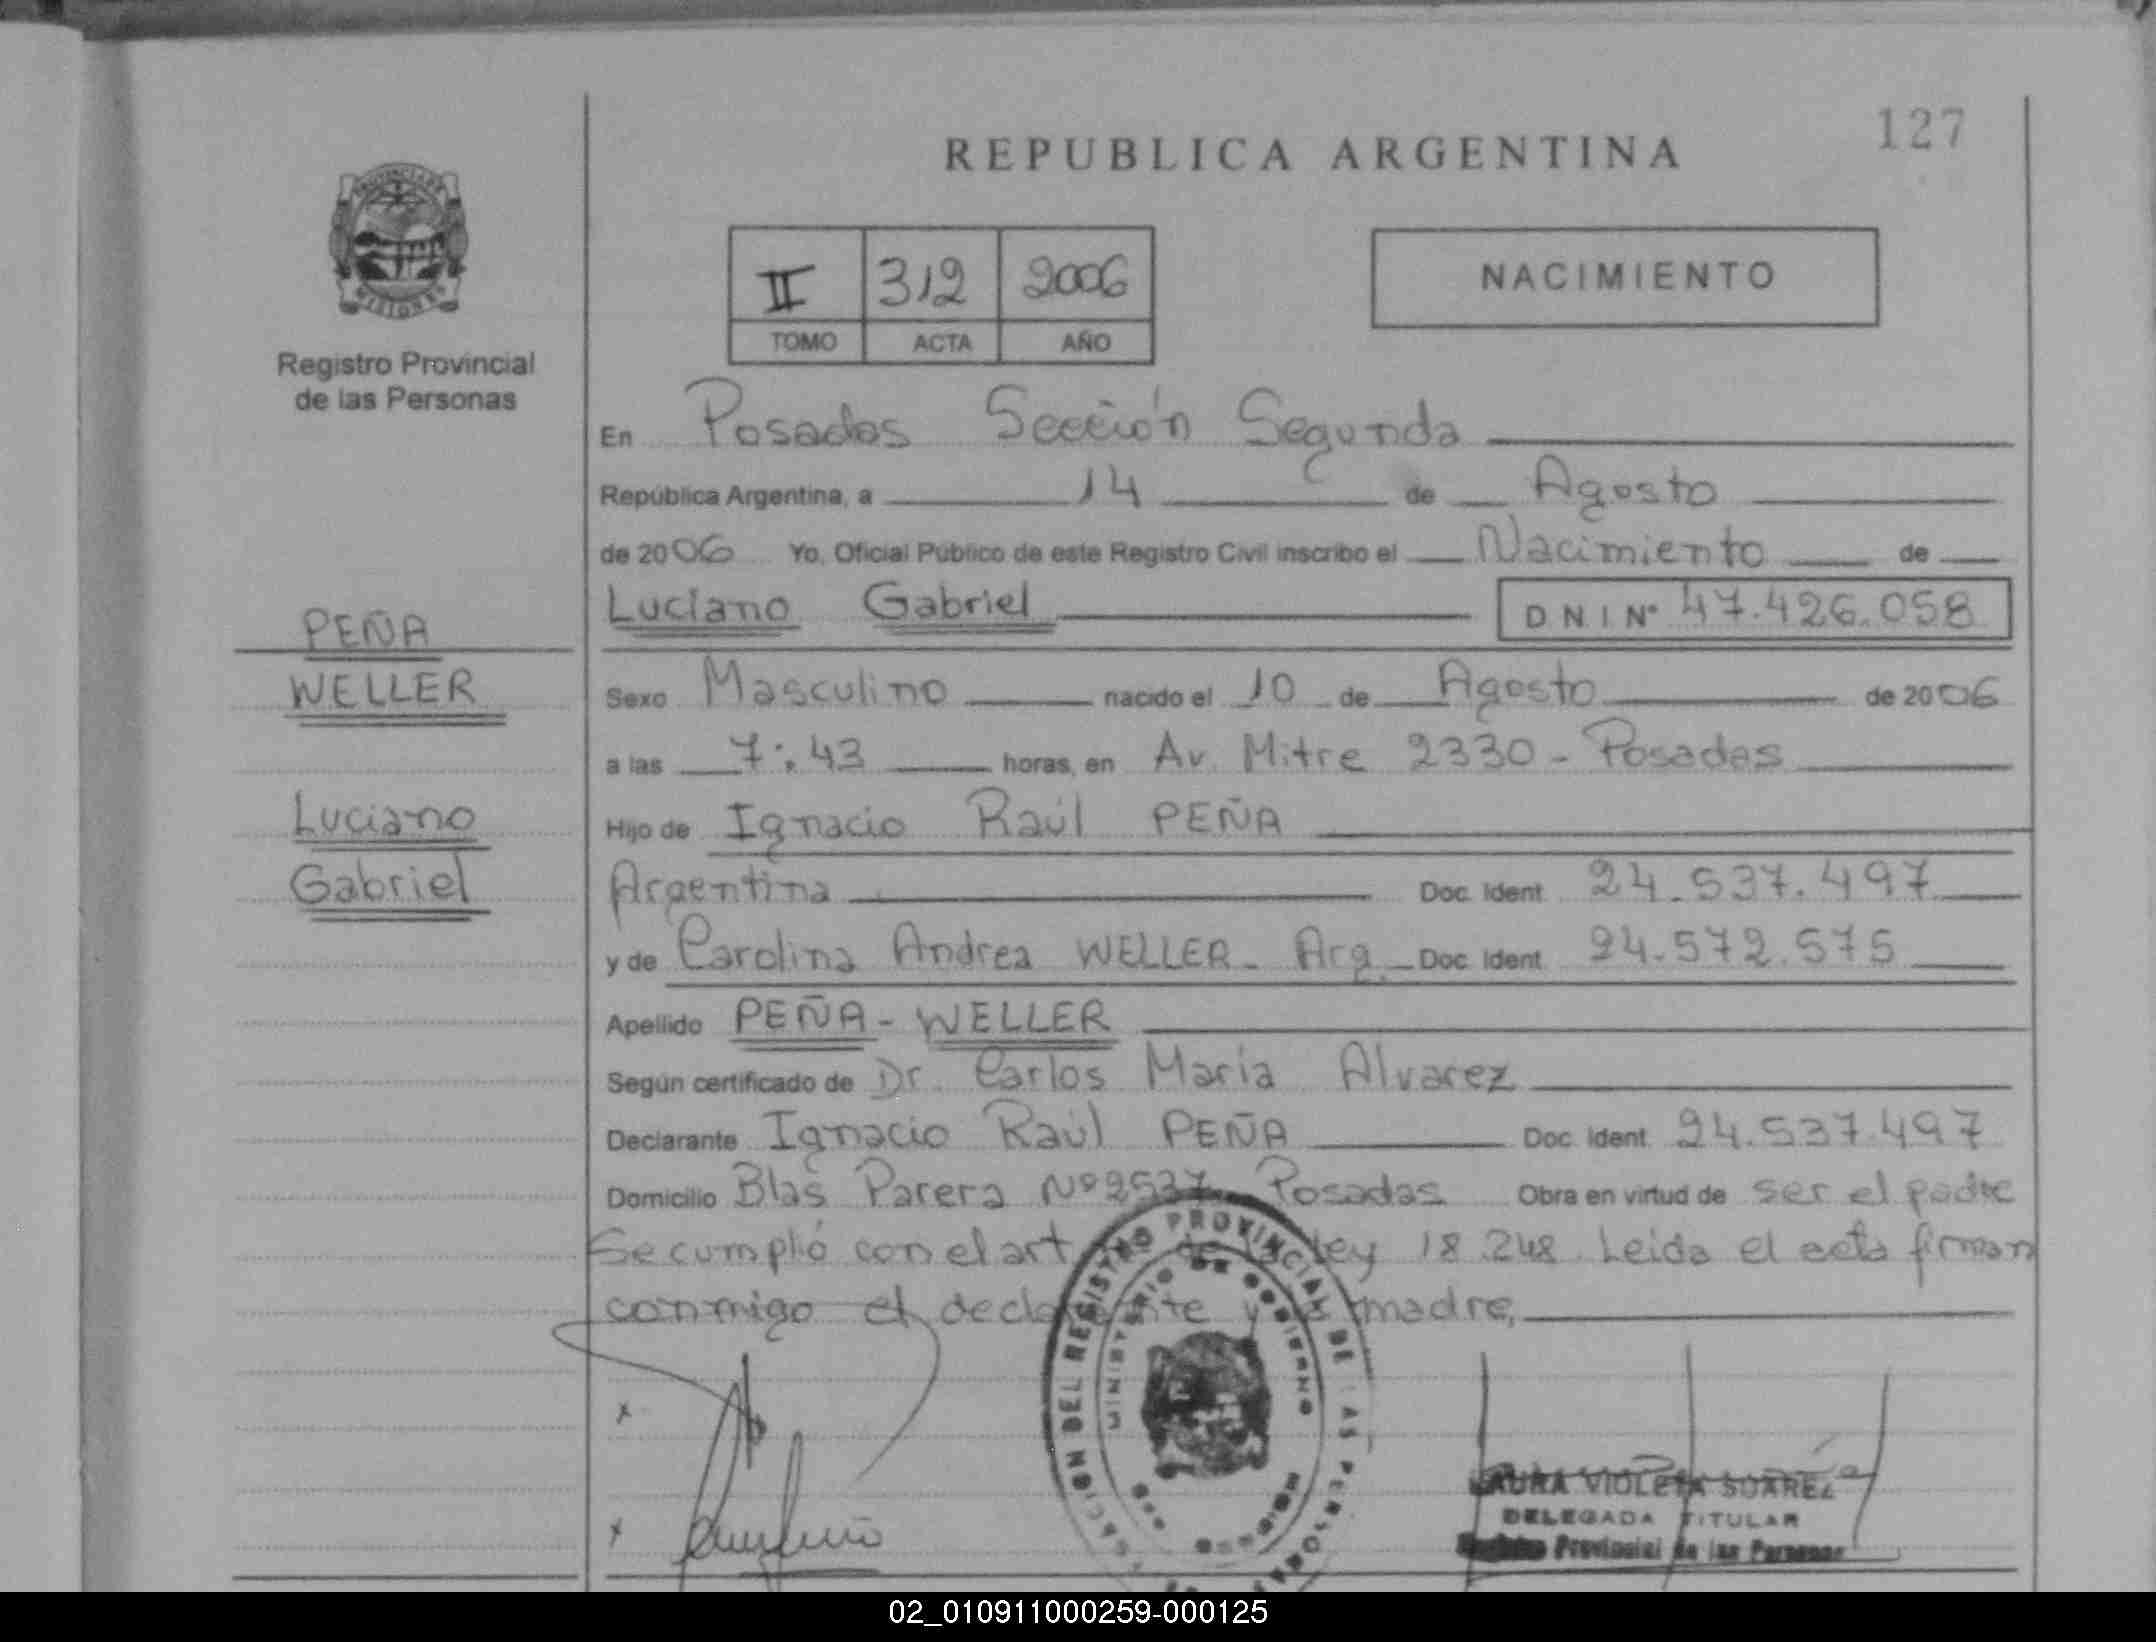 127
REPUBLICA ARGENTINA
PROVINCIA DE
MISIONES
Registro Provincial
de las Personas
II 312 2006
TOMO ACTA AÑO
NACIMIENTO
En Posadas Sección Segunda
República Argentina, a 14 de Agosto
de 2006 Yo, Oficial Público de este Registro Civil inscribo el Nacimiento de
Luciano Gabriel D N I Nº 47.426.058
PEÑA
WELLER
Luciano
Gabriel
Sexo Masculino nacido el 10 de Agosto de 2006
a las 7:43 horas, en Av. Mitre 2330 - Posadas
Hijo de Ignacio Raúl PEÑA
Argentina Doc. Ident. 24.537.497
y de Carolina Andrea WELLER - Arg. Doc. Ident. 24.572.575
Apellido PEÑA - WELLER
Según certificado de Dr. Carlos María Alvarez
Declarante Ignacio Raúl PEÑA Doc. Ident. 24.537.497
Domicilio Blas Parera Nº 2537 Posadas Obra en virtud de ser el padre
Se cumplió con el art de la Ley 18.248. Leida el acta firman
conmigo el declarante y la madre,
x
x
DEL REGISTRO PROVINCIAL DE LAS PERSONAS
MINISTERIO DE GOBIERNO
LAURA VIOLETA SUAREZ
DELEGADA TITULAR
Registro Provincial de las Personas
02_010911000259-000125